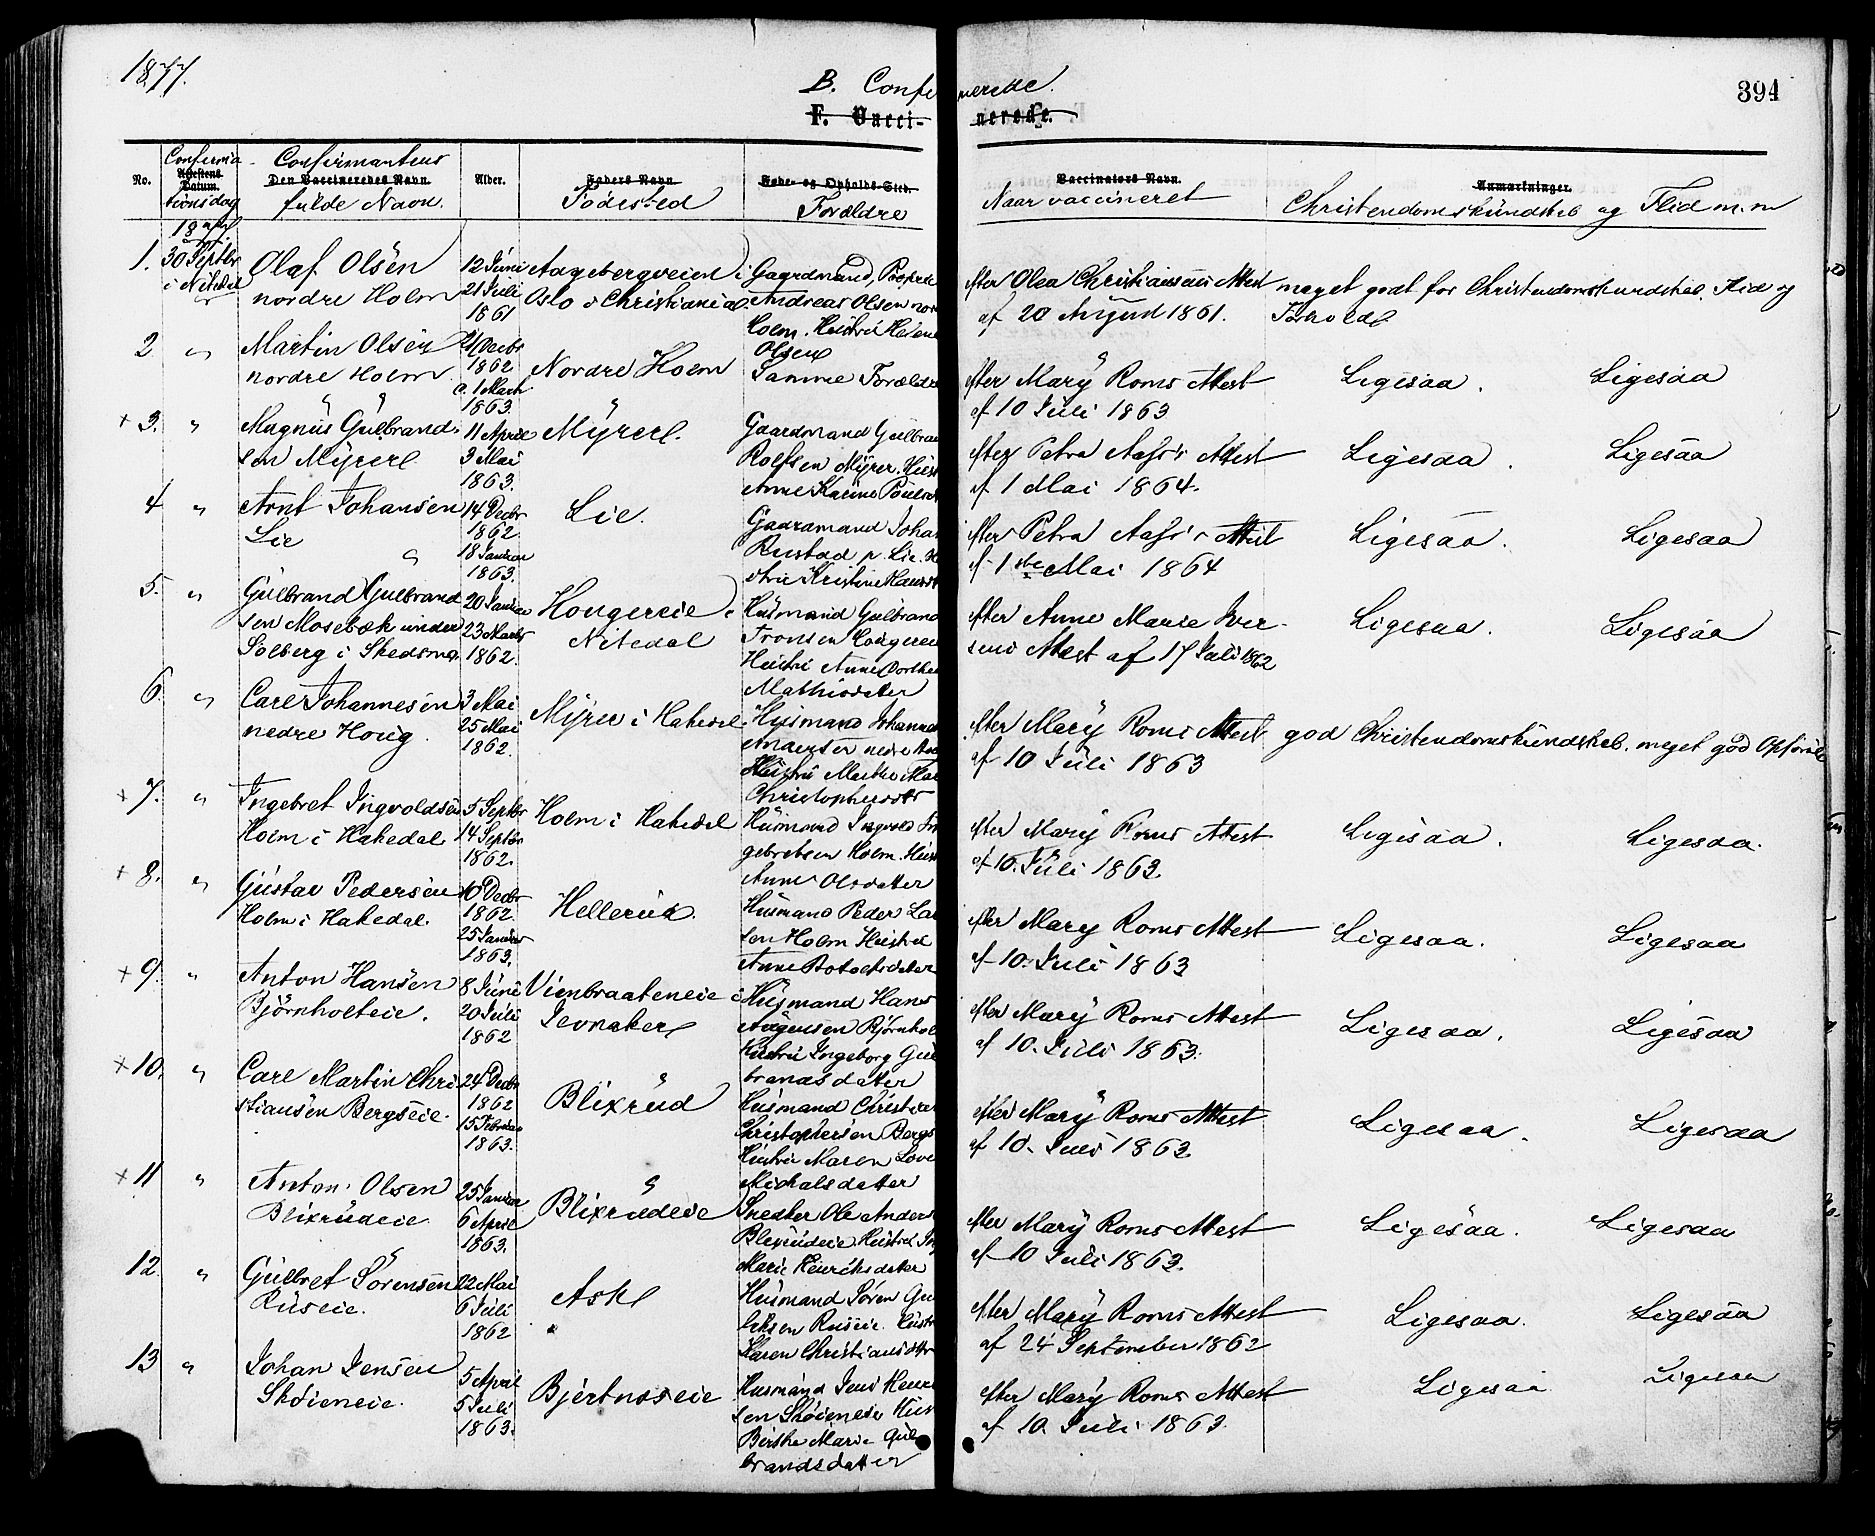 1877.
B. Confirmerede.
394
F. Vaccinerede.
No.
Confirmationsdag
Attestens Datum.
Confirmantens fulde Navn.
Den Vaccineredes Navn.
Alder.
Faders Navn.
Födested
Føde- og Opholds-Sted.
Forældre
Vaccinators Navn.
Naar vaccineret
Anmærkninger.
Christendomskundskab og Flid m.m
1877
1. 30 Septbr i Nitedal
Olaf Olsen
nordre Holm
12 Juni
21 Juli
1861
Aagebergveien i
Oslo i Christiania
Gaardmand,
Andreas Olsen nor
Holm. Hustru Helene
Olsen
efter Olea Christiansens Attest
af 20 August 1861.
meget godt for Christendomskundskab, Flid og
Forhold
2 "
Martin Olsen
nordre Holm
Decbr
1862
1 Marts
1863
Nordre Holm
Samme Forældre
efter Mary Roms Attest
af 10 Juli 1863
Ligesaa.
Ligesaa
+ 3. "
Magnus Gulbrand-
sen Myrer
11 April
3 Mai
1863.
Myrer.
Gaardmand Gulbran
Rolfsen Myrer. Hust
Anne Karine Pouls
efter Petra Aass's Attest
af 1 Mai 1864.
Ligesaa.
Ligesaa
4 "
Arnt Johansen
Lie
14 Decbr
1862
18 Januar
1863.
Lie.
Gaardmand Johan
Rustad p. Lie.
stru Kristine Hans
efter Petra Aass's Attest
af 1ste Mai 1864
Ligesaa.
Ligesaa
5. "
Gulbrand Gulbrand
sen Mosebæk under
Solberg i Skedsmo
20 Januar
23 Marts
1862.
Hougereie i
Nitedal
Husmand Gulbrand
Tronsen Hougerei
Hustru Anne Dorthea
Mathisdatter
efter Anne Marie Iver-
sens Attest af 17 Juli 1862
Ligesaa.
Ligesaa
6. "
Carl Johannesen
nedre Houg.
3 Mai
25 Mai
1862.
Myrer i Hakedal
Husmand Johannes
Andersen nedre
Hustru Marthe
Christophersdtr
efter Mary Roms Attest
af 10 Juli 1863
god Christendomskundskab. meget god Opførsel
+ 7. "
Ingebret Ingvoldsen
Holm i Hakedal
5 Septbr
14 Septbr
1862.
Holm i Hakedal
Husmand Ingvold In
gebretsen Holm. Hust
Anne Olsdatter
efter Mary Roms Attest
af 10. Juli 1863.
Ligesaa.
Ligesaa.
+ 8. "
Gustav Pedersen
Holm i Hakedal.
10 Decbr
1862.
25 Januar
1863.
Hellerud.
Husmand Peder La
sen Holm Hustru
Anne
efter Mary Roms Attest
af 10. Juli 1863
Ligesaa.
Ligesaa
+ 9. "
Anton Hansen
Bjørnholteie.
8 Juni
20 Juli
1862
Vienbraateneie i
Jevnaker
Husmand Hans
Aagensen Bjørnhol
Hustru Ingeborg Gul
brandsdatter
efter Mary Roms Attest
af 10. Juli 1863.
Ligesaa.
Ligesaa
+ 10. "
Carl Martin Chri
stiansen Bergseie.
24 Decbr
1862
15 Februar
1863.
Blixrud
Husmand Christian
Christophersen Bergs
Hustru Maren Lovi
Michalsdatter
efter Mary Roms Attest
af 10. Juli 1863.
Ligesaa.
Ligesaa
+ 11 "
Anton Olsen
Blixrudeie
25 Januar
6 April
1863.
Blixrudeie
Snedker Ole Anders
Blixrudeie. Hustru
Marie Henriksdatter
efter Mary Roms Attest
af 10 Juli 1863.
Ligesaa.
Ligesaa
12. "
Gulbret Sørensen
Ruseie.
22 Mai
6 Juli
1862
Ask
Husmand Søren Gu
Ruseie. Hustr
Karen Christiansdtr
efter Mary Roms Attest
af 24 September 1862
Ligesaa.
Ligesaa
13 "
Johan Jensen
Skøieneie.
5 April
5 Juli
1863.
Bjertnæseie
Husmand Jens Henri
sen Skøieneie Hust
Berthe Marie Gul
brandsdatter
efter Mary Roms Attest
af 10. Juli 1863.
Ligesaa
Ligesaa